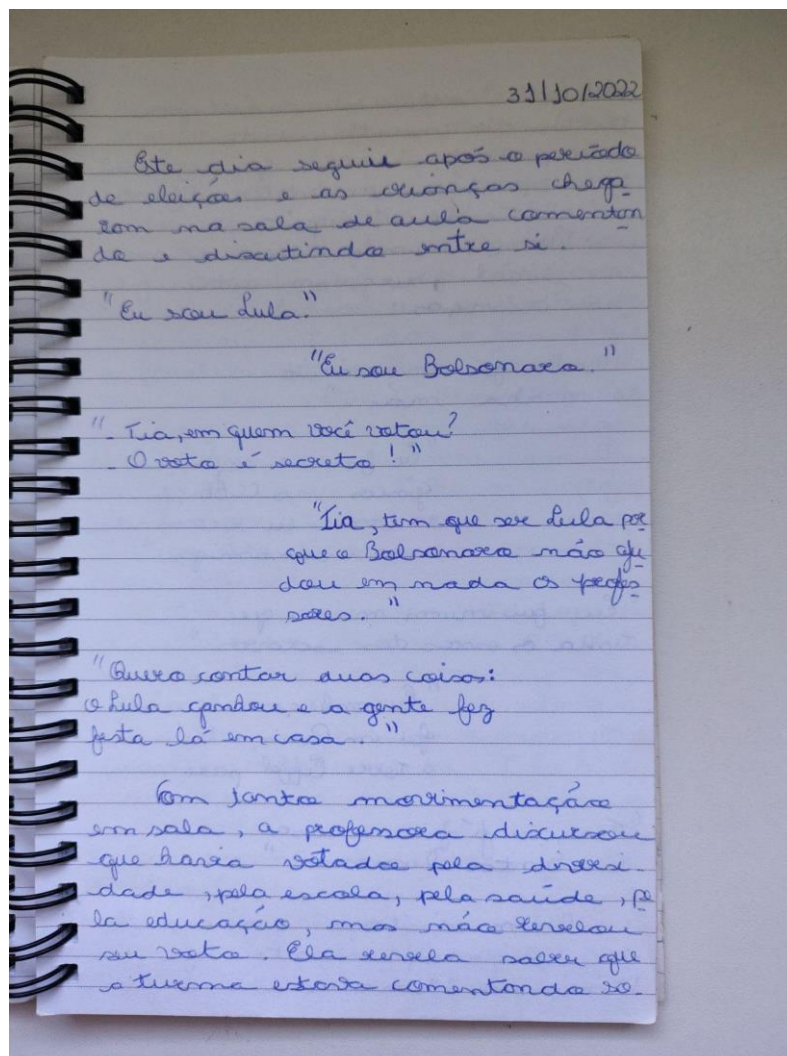 31/10/2022
Este dia seguiu após o período
de eleições e as crianças chega
ram na sala de aula comentan
do e discutindo entre si.
"Eu sou Lula."
"Eu sou Bolsonaro."
"- Tia, em quem você votou?
- O voto é secreto!"
"Tia, tem que ser Lula por
que o Bolsonaro não aju
dou em nada os profes
sores."
"Quero contar duas coisas:
o Lula ganhou e a gente fez
festa lá em casa."
Com tanta movimentação
em sala, a professora discursou
que havia votado pela diversi-
dade, pela escola, pela saúde, pe
la educação, mas não revelou
seu voto. Ela revela saber que
a turma estava comentando so-